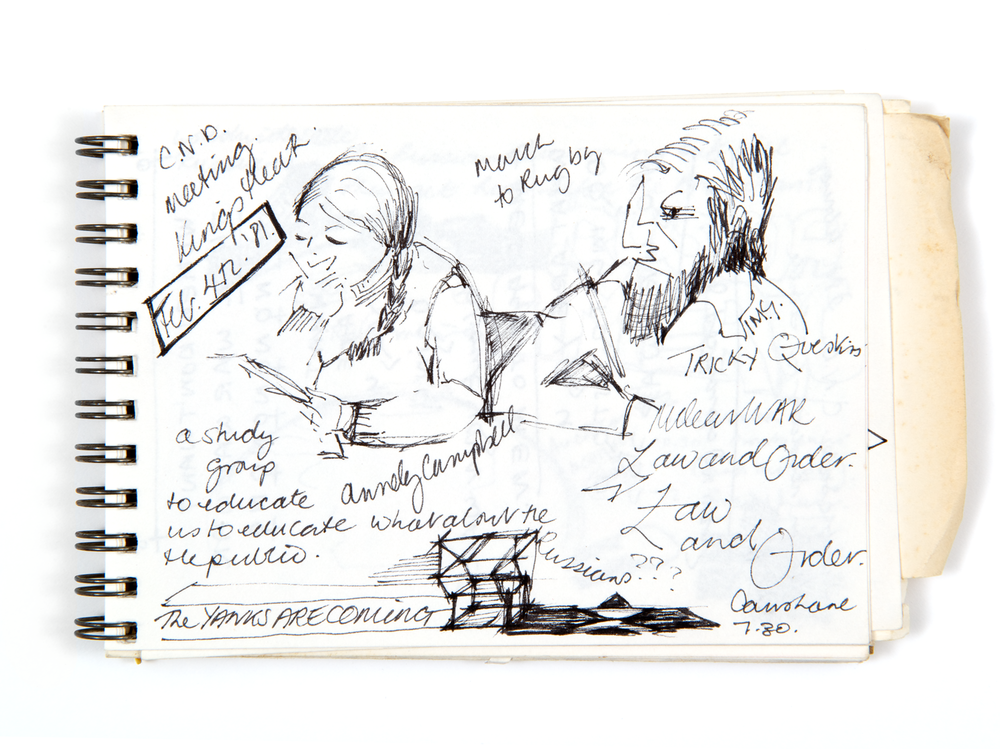 C.N.D.
meeting.
Kingshead.
Feb. 4th. '81.
march
to Rugby
TIMY.
TRICKY Questions
NuclearWAR
Law and Order.
Law
and Order.
Cawshane
7.30.
a study
group
to educate
us to educate
the public.
annely Campbell
what about the
Russians???
The YANKS ARE COMING